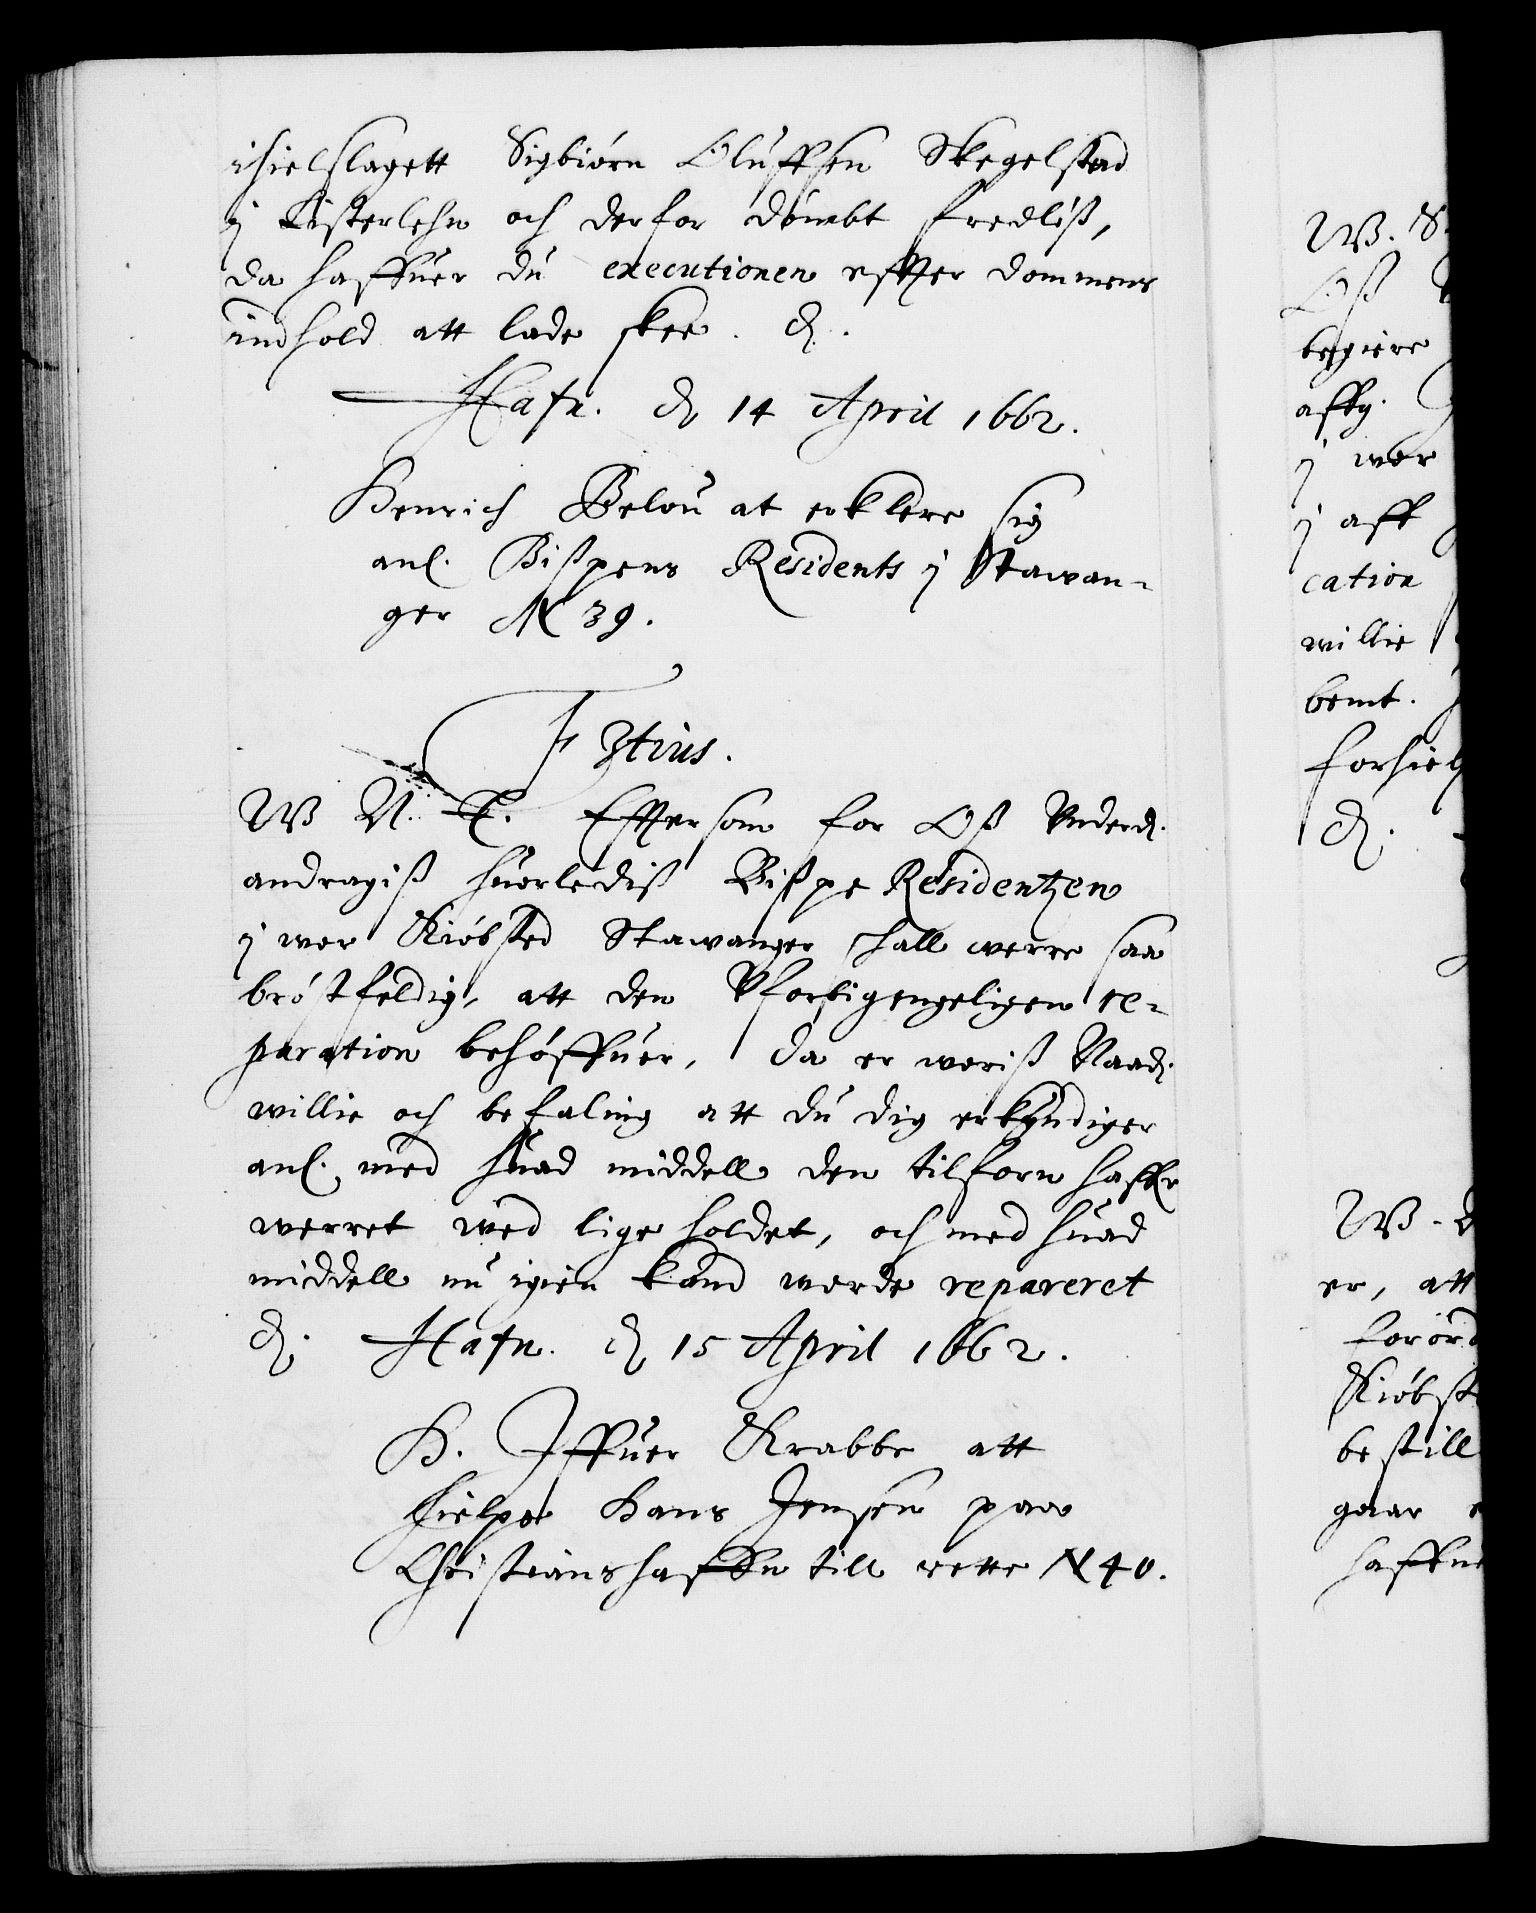 ihielslagett Sigbiørn Oluffsen Skegelstad
j Listerlehn och derfor dømbt fredløß,
da haffuer du executionen effter dommens
indhold att lade skee. d.
Hafn. d 14 April 1662.
Henrich Belou at erklere sig
anl. Bißpens Residents j Stawan-
ger N 39.
F 3tius.
W N. T. Effter som for Oß Underd.
andragiß huorlediß Bißpe Residentzen
j wor Kiøbsted Stawanger shall werre saa
brøstfeldig, att den Uforbigengeligen re-
paration behøffuer, da er woriß Naad.
willie och befaling att du dig erkyndiger
anl. med huad middell den tilforn haffr
werret wed lige holdet, och med huad
middell nu igien kand worde repareret
d. Hafn. d 15 April 1662.
H. Iffuer Krabbe att
hielpe Hans Jensen paa
Christianshaffn till rette N 40.
W. S
Oß
begiere
affg.
j wor
j aff
cation
willie
bemt.
forhiel
d.
W.
er, att
forord
Kiøbst
bestill
gaar
haffue